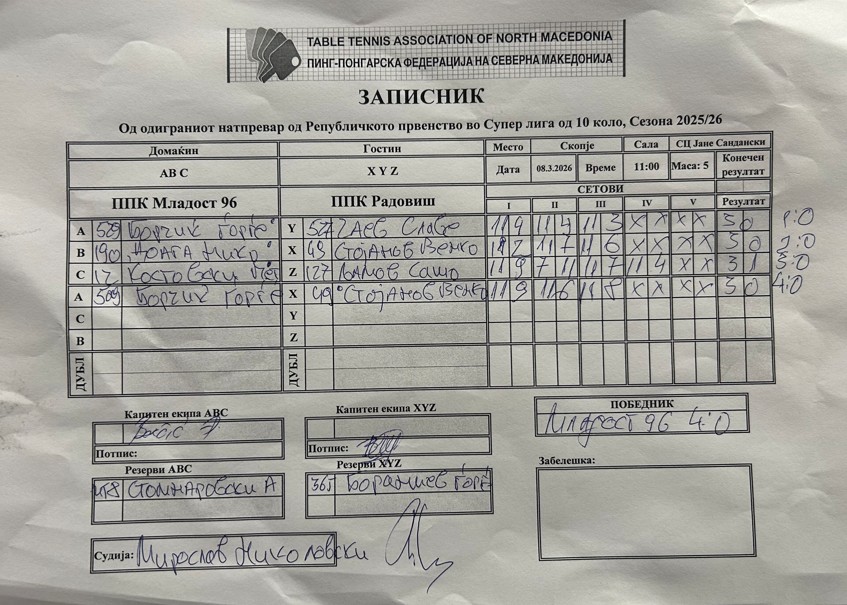 TABLE TENNIS ASSOCIATION OF NORTH MACEDONIA
ПИНГ-ПОНГАРСКА ФЕДЕРАЦИЈА НА СЕВЕРНА МАКЕДОНИЈА
ЗАПИСНИК
Од одиграниот натпревар од Републичкото првенство во Супер лига од 10 коло, Сезона 2025/26
Домаќин Гостин Место Скопје Сала СЦ Јане Сандански
A B C X Y Z Дата 08.3.2026 Време 11:00 Маса: 5 Конечен резултат
ППК Младост 96 ППК Радовиш СЕТОВИ
I II III IV V Резултат
A Ѓорѓе Y Слабе 11 9 11 4 11 3 X X X X 3 0 1:0
B 190 X 49 Стојанов Венко 11 7 11 6 X X X X 3 0 2:0
C 17 Костовски Z 127 Сашо 11 9 7 11 11 7 11 4 X X 3 1 3:0
A 509 Ѓорѓе X 49 Стојанов Венко 11 9 11 6 11 8 X X X X 3 0 4:0
C Y
B Z
ДУБЛ ДУБЛ
Капитен екипа ABC Капитен екипа XYZ ПОБЕДНИК
Младост 96 4:0
Потпис: Потпис:
Резерви ABC Резерви XYZ Забелешка:
Столнаровски А 365 Ѓорѓи
Судија: Мирослав Николовски